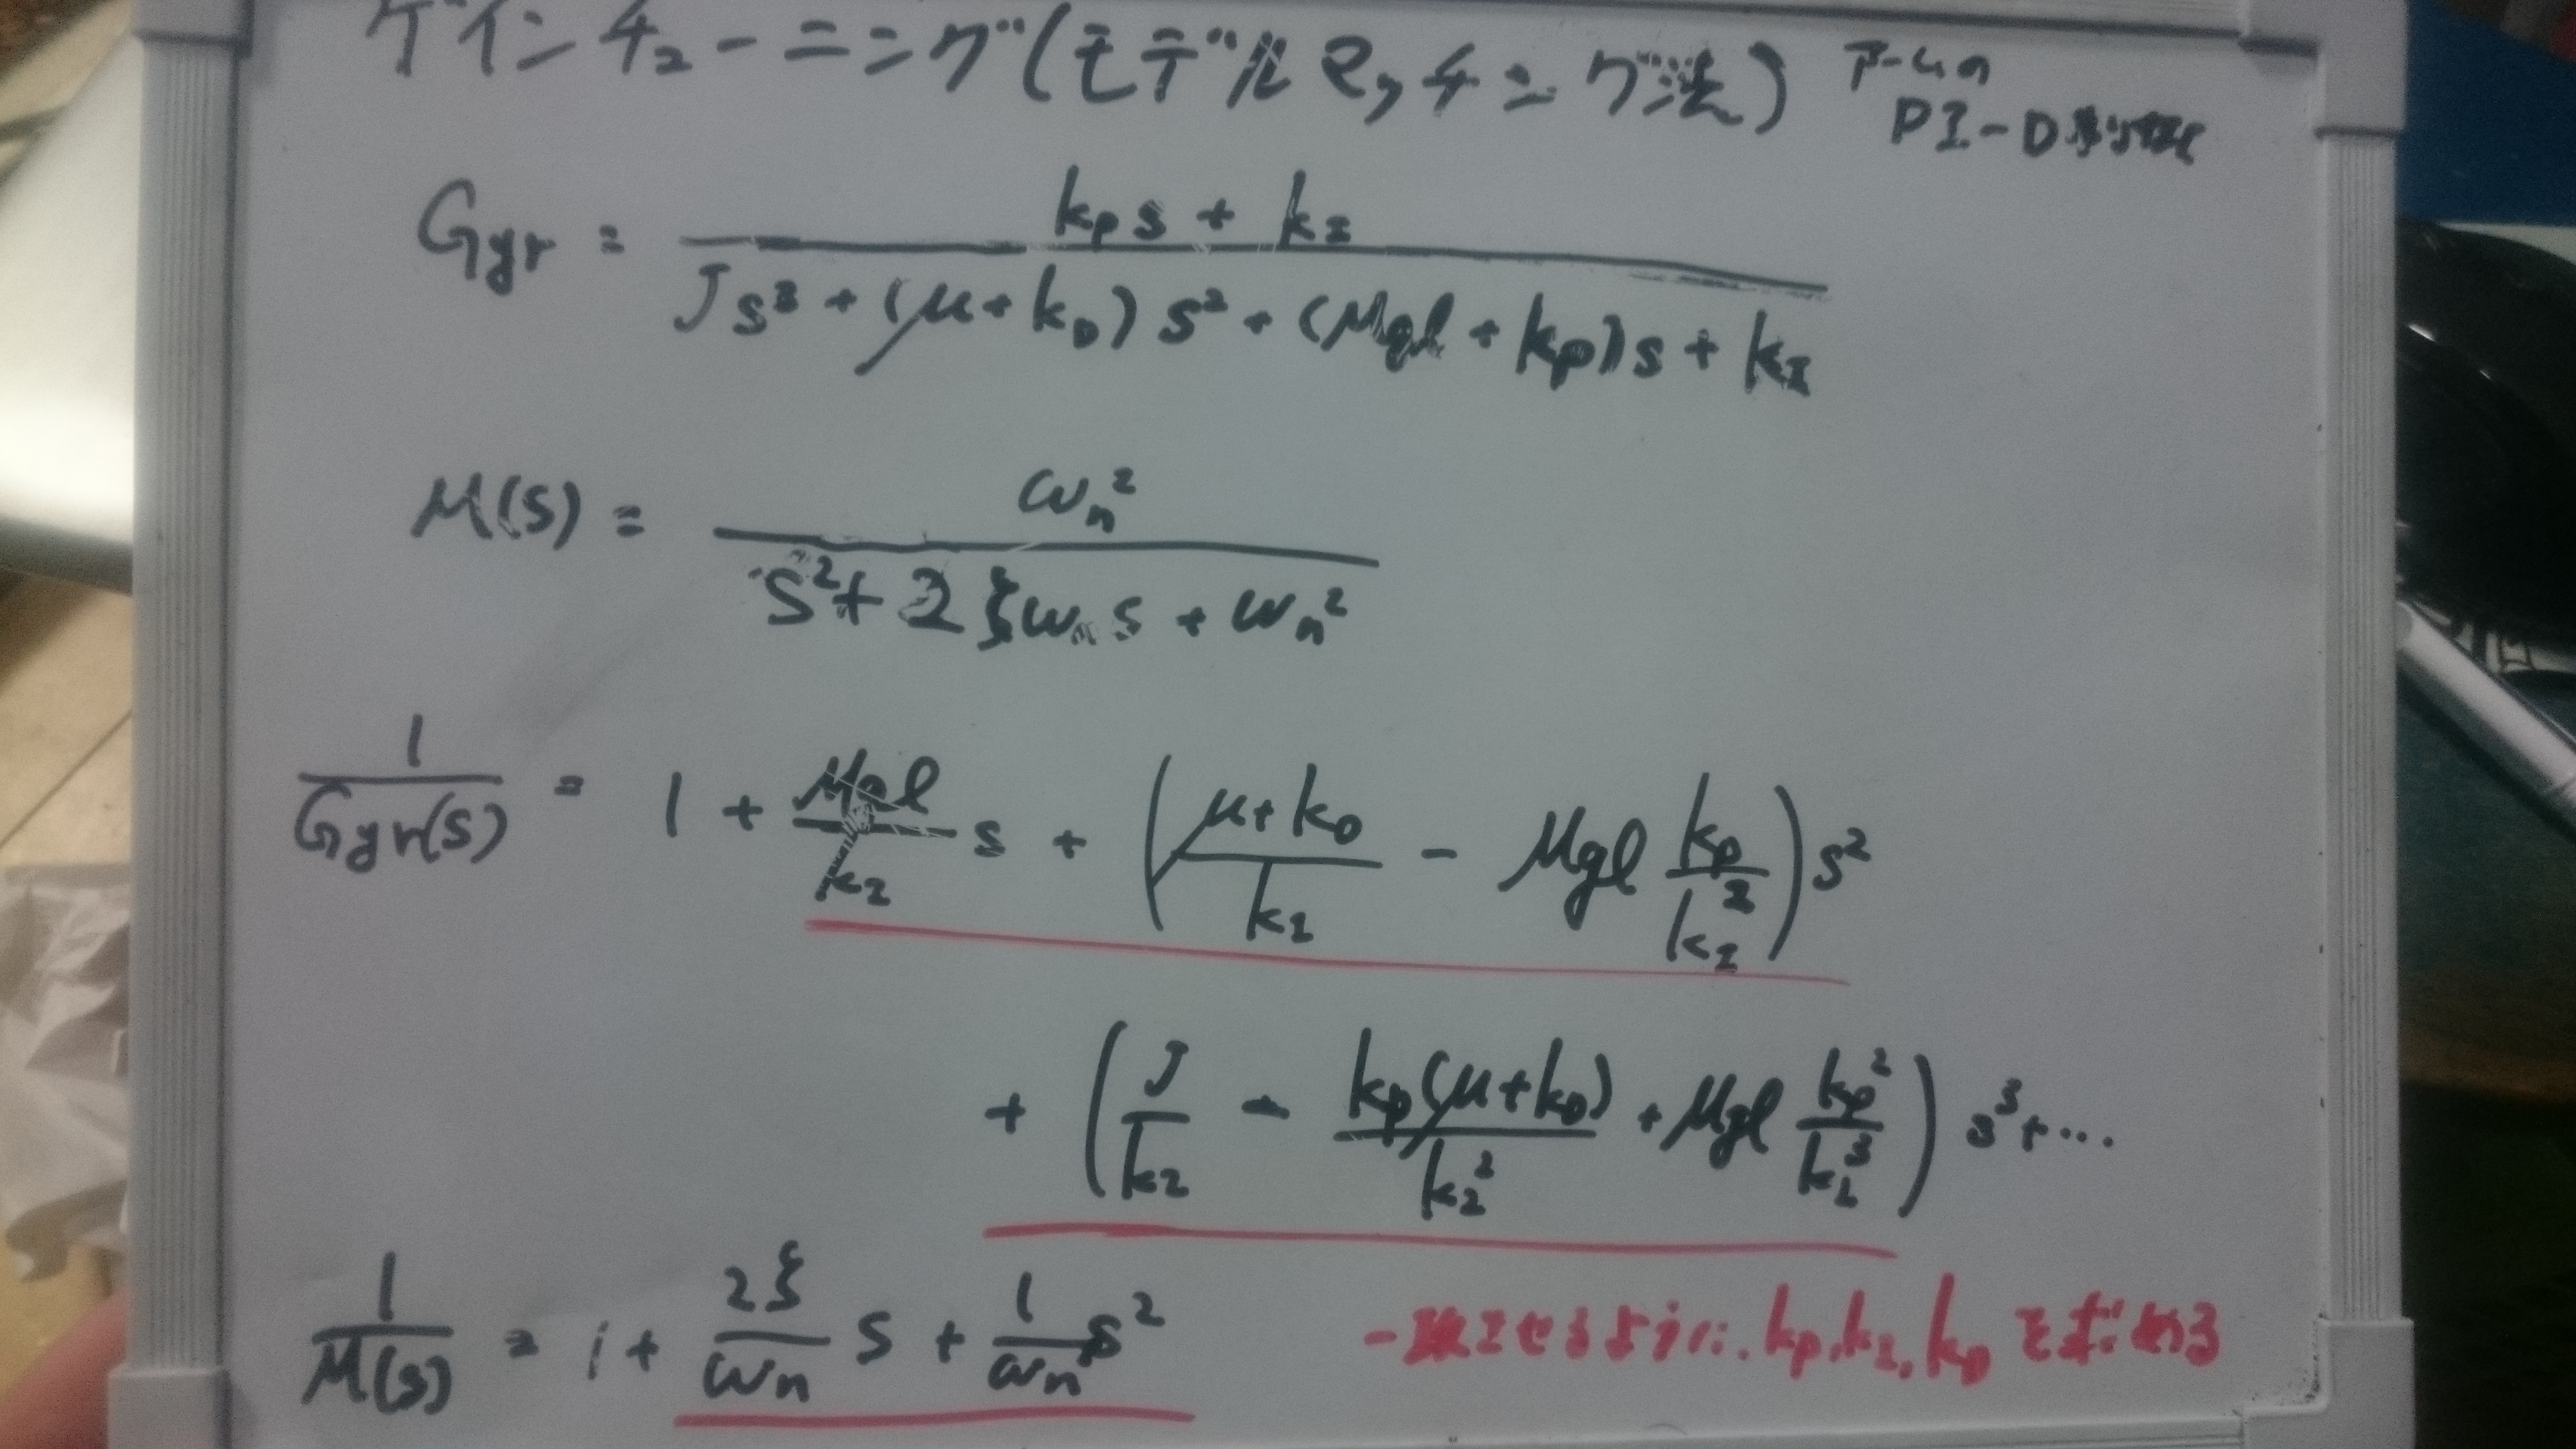 ゲインチューニング(モデルマッチング法) アームの
PI-D制御
Gyr = (kp s + kI) / (J s³ + (μ + kD) s² + (Mgl + kp) s + kI)
M(s) = ωn² / (s² + 2ξωn s + ωn²)
1/Gyr(s) = 1 + Mgl/kI s + ((μ + kD)/kI − Mgl kp/kI²) s²
+ (J/kI − kp(μ + kD)/kI² + Mgl kp²/kI³) s³ + …
1/M(s) = 1 + 2ξ/ωn s + 1/ωn s² 一致させるように、kp, kI, kD を求める